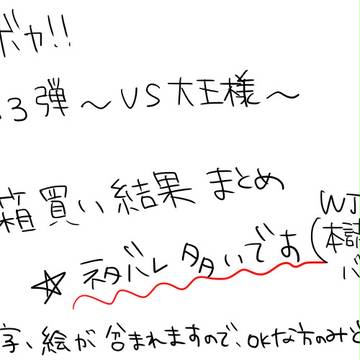 ボカ!!
.3弾～VS大王様～
箱買い結果 まとめ
☆ネタバレ多いです
(WJ
本誌
バ
字、絵が含まれますので、OKな方のみど